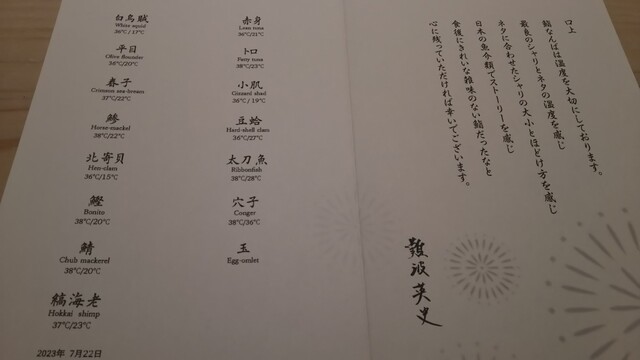 口上
鮨なんばは温度を大切にしております。
最良のシャリとネタの温度を感じ
ネタに合わせたシャリの大小とほどけ方を感じ
日本の魚介類でストーリーを感じ
食後にきれいな雑味のない鮨だったなと
心に残っていただければ幸いでございます。
難波英史
白烏賊
White squid
36℃/17℃
平目
Olive flounder
36℃/20℃
春子
Crimson sea-bream
37℃/22℃
鯵
Horse-mackel
38℃/22℃
北寄貝
Hen-clam
36℃/15℃
鰹
Bonito
38℃/20℃
鯖
Chub mackerel
38℃/20℃
縞海老
Hokkai shimp
37℃/23℃
赤身
Lean tuna
36℃/21℃
トロ
Fatty tuna
38℃/23℃
小肌
Gizzard shad
36℃/19℃
豆蛤
Hard-shell clam
36℃/27℃
太刀魚
Ribbonfish
38℃/28℃
穴子
Conger
38℃/36℃
玉
Egg-omlet
2023年 7月22日